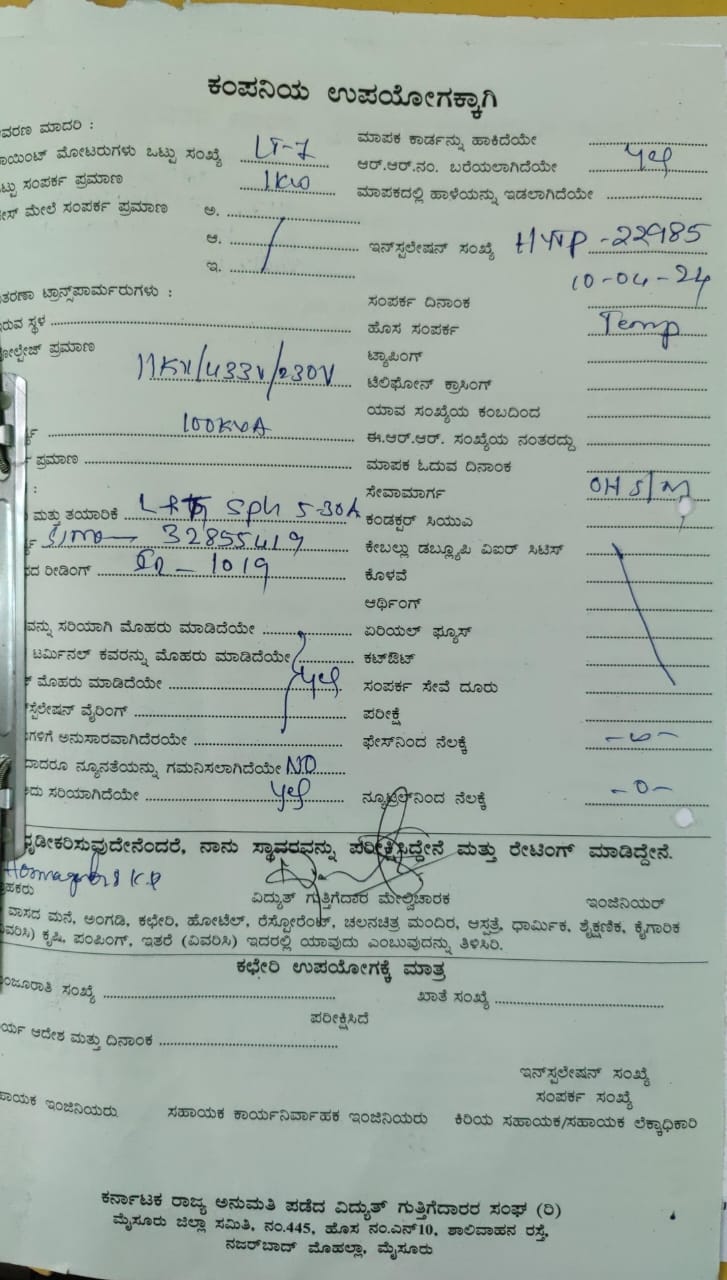 ಕಂಪನಿಯ ಉಪಯೋಗಕ್ಕಾಗಿ
ವರಣ ಮಾದರಿ :
ಮಾಪಕ ಕಾರ್ಡನ್ನು ಹಾಕಿದೆಯೇ
ಾಯಿಂಟ್ ಮೋಟರುಗಳು ಒಟ್ಟು ಸಂಖ್ಯೆ LT-7
ಆರ್.ಆರ್.ನಂ. ಬರೆಯಲಾಗಿದೆಯೇ Yes
ಟ್ಟು ಸಂಪರ್ಕ ಪ್ರಮಾಣ 1KW
ಮಾಪಕದಲ್ಲಿ ಹಾಳೆಯನ್ನು ಇಡಲಾಗಿದೆಯೇ
ೇಸ್ ಮೇಲೆ ಸಂಪರ್ಕ ಪ್ರಮಾಣ ಅ.
ಆ.
ಇನ್ಸ್ಪಲೇಷನ್ ಸಂಖ್ಯೆ HYTP -22985
ಇ.
10-04-24
ತರಣಾ ಟ್ರಾನ್ಸ್‌ಪಾರ್ಮರುಗಳು :
ಸಂಪರ್ಕ ದಿನಾಂಕ
ರುವ ಸ್ಥಳ
ಹೊಸ ಸಂಪರ್ಕ Temp
ೋಲ್ಟೇಜ್ ಪ್ರಮಾಣ 11KV/433V/230V
ಟ್ಯಾಪಿಂಗ್
ಟೆಲಿಫೋನ್ ಕ್ರಾಸಿಂಗ್
ಯಾವ ಸಂಖ್ಯೆಯ ಕಂಬದಿಂದ
100KVA
ಈ.ಆರ್.ಆರ್. ಸಂಖ್ಯೆಯ ನಂತರದ್ದು
ಪ್ರಮಾಣ
ಮಾಪಕ ಓದುವ ದಿನಾಂಕ
ಸೇವಾಮಾರ್ಗ OH S/M
ಮತ್ತು ತಯಾರಿಕೆ Sph 5-30A
ಕಂಡಕ್ಟರ್ ಸಿಯುಎ
32855419
ಕೇಬಲ್ಲು ಡಬ್ಲ್ಯೂಪಿ ವಿಐರ್ ಸಿಟಿಸ್
ದ ರೀಡಿಂಗ್ IR - 1019
ಕೊಳವೆ
ಆರ್ಥಿಂಗ್
ವನ್ನು ಸರಿಯಾಗಿ ಮೊಹರು ಮಾಡಿದೆಯೇ
ಏರಿಯಲ್ ಫ್ಯೂಸ್
ಟರ್ಮಿನಲ್ ಕವರನ್ನು ಮೊಹರು ಮಾಡಿದೆಯೇ
ಕಟ್‌ಔಟ್
ಮೊಹರು ಮಾಡಿದೆಯೇ Yes
ಸಂಪರ್ಕ ಸೇವೆ ದೂರು
ಸ್ಪೆಲೇಷನ್ ವೈರಿಂಗ್
ಪರೀಕ್ಷೆ
ಗಳಿಗೆ ಅನುಸಾರವಾಗಿದೆರಯೇ
ಫೇಸ್‌ನಿಂದ ನೆಲಕ್ಕೆ
ದಾದರೂ ನ್ಯೂನತೆಯನ್ನು ಗಮನಿಸಲಾಗಿದೆಯೇ NO
ದು ಸರಿಯಾಗಿದೆಯೇ Yes
ನ್ಯೂಟ್ರಲ್‌ನಿಂದ ನೆಲಕ್ಕೆ -0-
ೃಡೀಕರಿಸುವುದೇನೆಂದರೆ, ನಾನು ಸ್ಥಾವರವನ್ನು ಪರೀಕ್ಷಿಸಿದ್ದೇನೆ ಮತ್ತು ರೇಟಿಂಗ್ ಮಾಡಿದ್ದೇನೆ.
ರಾಹಕರು
ವಿದ್ಯುತ್ ಗುತ್ತಿಗೆದಾರ ಮೇಲ್ವಿಚಾರಕ
ಇಂಜಿನಿಯರ್
ವಾಸದ ಮನೆ, ಅಂಗಡಿ, ಕಛೇರಿ, ಹೋಟೆಲ್, ರೆಸ್ಟೋರೆಂಟ್, ಚಲನಚಿತ್ರ ಮಂದಿರ, ಆಸ್ಪತ್ರೆ, ಧಾರ್ಮಿಕ, ಶೈಕ್ಷಣಿಕ, ಕೈಗಾರಿಕ
ವಿವರಿಸಿ) ಕೃಷಿ, ಪಂಪಿಂಗ್, ಇತರೆ (ವಿವರಿಸಿ) ಇದರಲ್ಲಿ ಯಾವುದು ಎಂಬುವುದನ್ನು ತಿಳಿಸಿರಿ.
ಕಛೇರಿ ಉಪಯೋಗಕ್ಕೆ ಮಾತ್ರ
ಂಜೂರಾತಿ ಸಂಖ್ಯೆ
ಖಾತೆ ಸಂಖ್ಯೆ
ಪರೀಕ್ಷಿಸಿದೆ
ರ್ಯ ಆದೇಶ ಮತ್ತು ದಿನಾಂಕ
ಇನ್‌ಸ್ಪಲೇಷನ್ ಸಂಖ್ಯೆ
ಸಂಪರ್ಕ ಸಂಖ್ಯೆ
ಹಾಯಕ ಇಂಜಿನಿಯರು ಸಹಾಯಕ ಕಾರ್ಯನಿರ್ವಾಹಕ ಇಂಜಿನಿಯರು ಕಿರಿಯ ಸಹಾಯಕ/ಸಹಾಯಕ ಲೆಕ್ಕಾಧಿಕಾರಿ
ಕರ್ನಾಟಕ ರಾಜ್ಯ ಅನುಮತಿ ಪಡೆದ ವಿದ್ಯುತ್ ಗುತ್ತಿಗೆದಾರರ ಸಂಘ (ರಿ)
ಮೈಸೂರು ಜಿಲ್ಲಾ ಸಮಿತಿ, ನಂ.445, ಹೊಸ ನಂ.ಎನ್10, ಶಾಲಿವಾಹನ ರಸ್ತೆ,
ನಜರ್‌ಬಾದ್ ಮೊಹಲ್ಲಾ, ಮೈಸೂರು